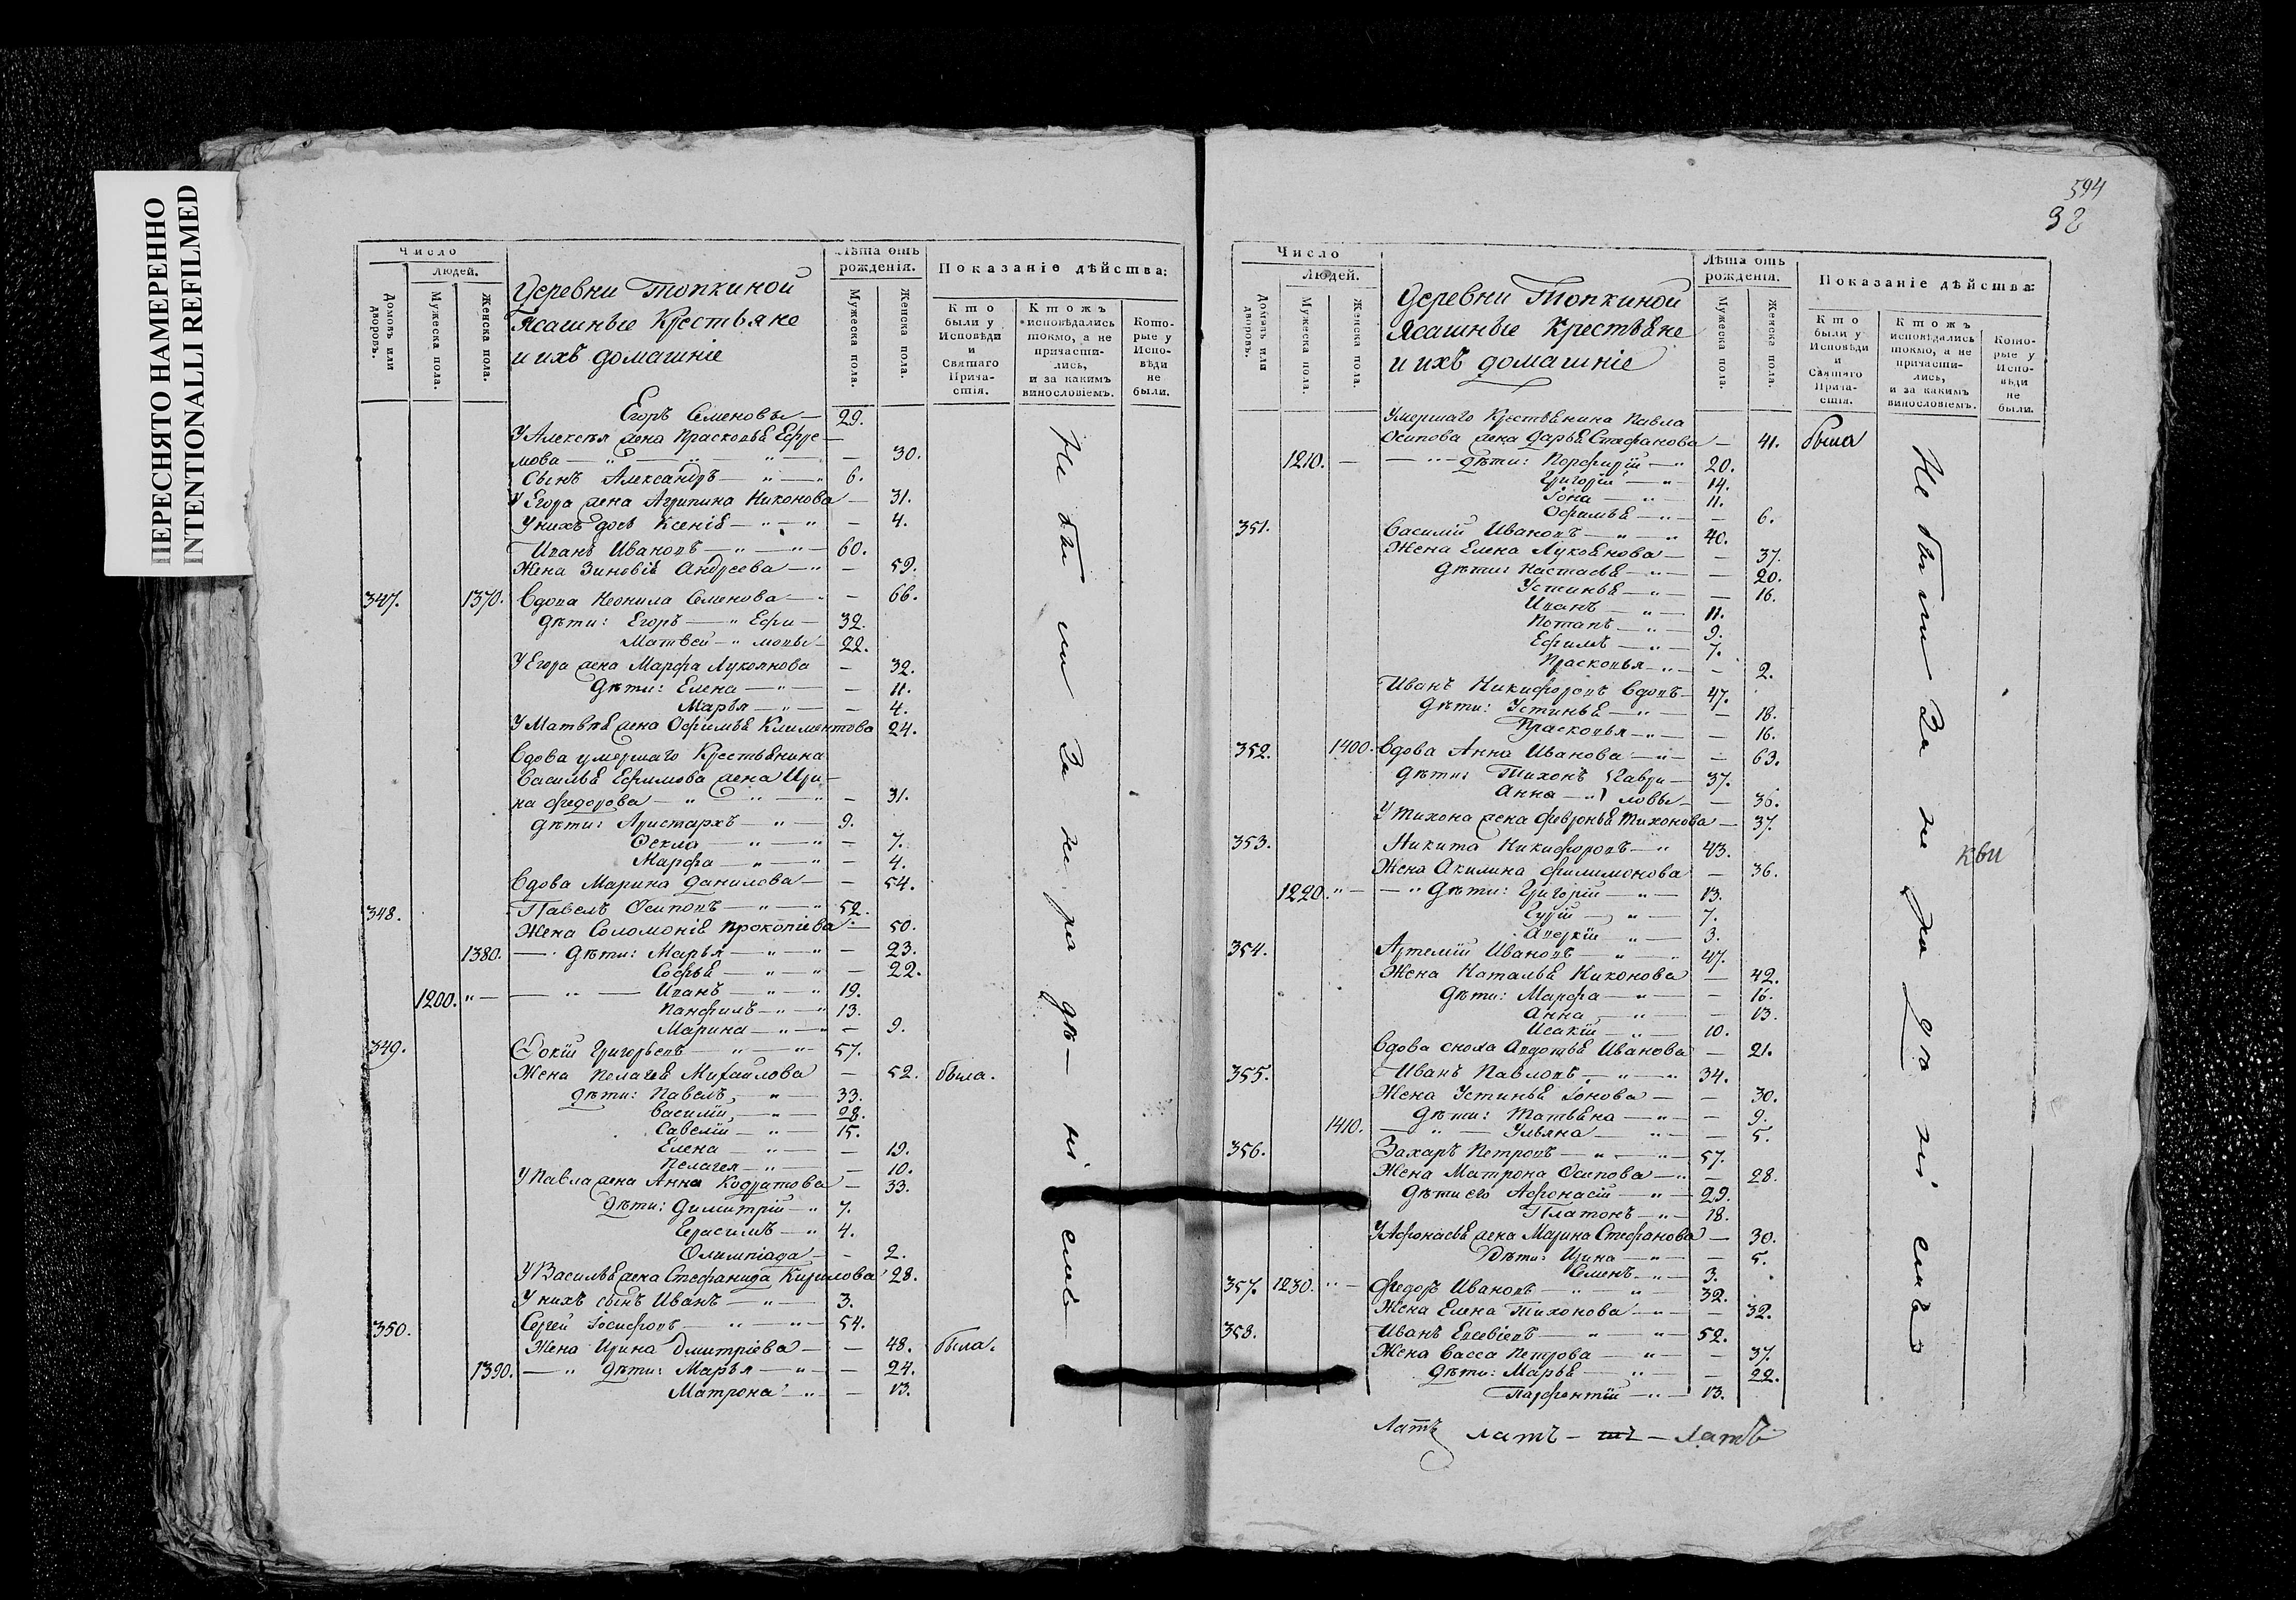 ПЕРЕСНЯТО НАМЕРЕННО
INTENTIONALLI REFILMED
Число
Людей.
Домовъ или дворовъ.
Мужеска пола.
Женска пола.
Деревни Топкиной
Ясашные Крестьяне
и ихъ домашніе
Лѣта отъ рожденія.
Мужеска пола.
Женска пола.
Показаніе дѣйства:
Кто были у Исповѣди и Святаго Прича-стія.
Ктожъ исповѣдались токмо, а не причасти-лись, и за какимъ винословіемъ.
Кото-рые у Испо-вѣди не были.
Егоръ Семеновы — 29.
У Алексѣя жена Прасковья Ефре-
мова — 30.
Сынъ Александръ — 6.
У Егора жена Агрипина Никонова — 31.
У нихъ дочь Ксеніѣ — 4.
Иванъ Ивановъ — 60.
Жена Зиновіѣ Андреева — 59.
347. 1370. Вдова Неонила Семенова — 66.
дѣти: Егоръ — Ефи — 32.
Матвей — мовы — 22.
У Егора жена Марфа Лукоянова — 32.
дѣти: Елена — 11.
Марья — 4.
У Матвѣѣ жена Офимьѣ Климентова 24.
Вдова умершаго Крестьѣнина
Васильѣ Ефимова жена Ири-
на Федорова — 31.
дѣти: Аристархъ — 9.
Фекла — 7.
Марфа — 4.
Вдова Марина Данилова — 54.
348. Павелъ Осиповъ — 52.
Жена Соломоніѣ Прокопіева — 50.
1380. — дѣти: Марья — 23.
Софьѣ — 22.
1200. — Иванъ — 19.
Панфилъ — 13.
Марина — 9.
349. Фокій Григорьевъ — 57.
Жена Пелагеѣ Михаилова — 52. была.
дѣти: Павелъ — 33.
Василій — 28.
Савелій — 15.
Елена — 19.
Пелагея — 10.
У Павла жена Анна Кодратова — 33.
дѣти: Димитрій — 7.
Герасимъ — 4.
Олимпіада — 2.
У Васильѣ жена Стефанида Кирилова 28.
У нихъ сынъ Иванъ — 3.
350. Сергей Іосифовъ — 54.
Жена Ирина Дмитріева — 48. была.
1390. — дѣти: Марья — 24.
Матрона — 13.
Не были За не ра дѣ — ні емъ
594
Число
Людей.
Домовъ или дворовъ.
Мужеска пола.
Женска пола.
Деревни Топкиной
Ясашные Крестьѣне
и ихъ домашніе
Лѣта отъ рожденія.
Мужеска пола.
Женска пола.
Показаніе дѣйства:
Кто были у Исповѣди и Святаго Прича-стія.
Ктожъ исповѣдались токмо, а не причасти-лись, и за какимъ винословіемъ.
Кото-рые у Испо-вѣди не были.
Умершаго Крестьѣнина Павла
Осипова жена Дарьѣ Стефанова — 41. была
1210. — дѣти: Порфирій — 20.
Григорій — 14.
Іона — 11.
Офимьѣ — 6.
351. Василій Ивановъ — 40.
Жена Елена Лукоѣнова — 37.
дѣти: Настасьѣ — 20.
Устиньѣ — 16.
Иванъ — 11.
Потапъ — 9.
Ефимъ — 7.
Прасковья — 2.
Иванъ Никифоровъ вдовъ — 47.
дѣти: Устиньѣ — 18.
Прасковья — 16.
352. 1400. Вдова Анна Иванова — 63.
дѣти: Тихонъ Гаври — 37.
Анна — ловы — 36.
У Тихона жена Февроньѣ Тихонова — 37.
353. Никита Никифоровъ — 43.
Жена Акилина Филимонова — 36.
1220. — дѣти: Григорій — 13.
Гурій — 7.
Аверкій — 3.
354. Артемій Ивановъ — 47.
Жена Натальѣ Никонова — 42.
дѣти: Марфа — 16.
Анна — 13.
Исакій — 10.
Вдова сноха Авдотьѣ Иванова — 21.
355. Иванъ Павловъ — 34.
Жена Устиньѣ Іонова — 30.
дѣти: Татьѣна — 9.
1410. — Ульяна — 5.
356. Захаръ Петровъ — 57.
Жена Матрона Осипова — 28.
дѣти его Афонасій — 29.
Платонъ — 18.
У Афонасьѣ жена Марина Стефанова — 30.
дѣти: Ирина — 5.
Семенъ — 3.
357. 1230. Федоръ Ивановъ — 32.
Жена Елена Тихонова — 32.
358. Иванъ Евсевіевъ — 52.
Жена Васса Петрова — 37.
дѣти: Марьѣ — 22.
Парфентій — 13.
Не были За не ра дѣ ні емъ